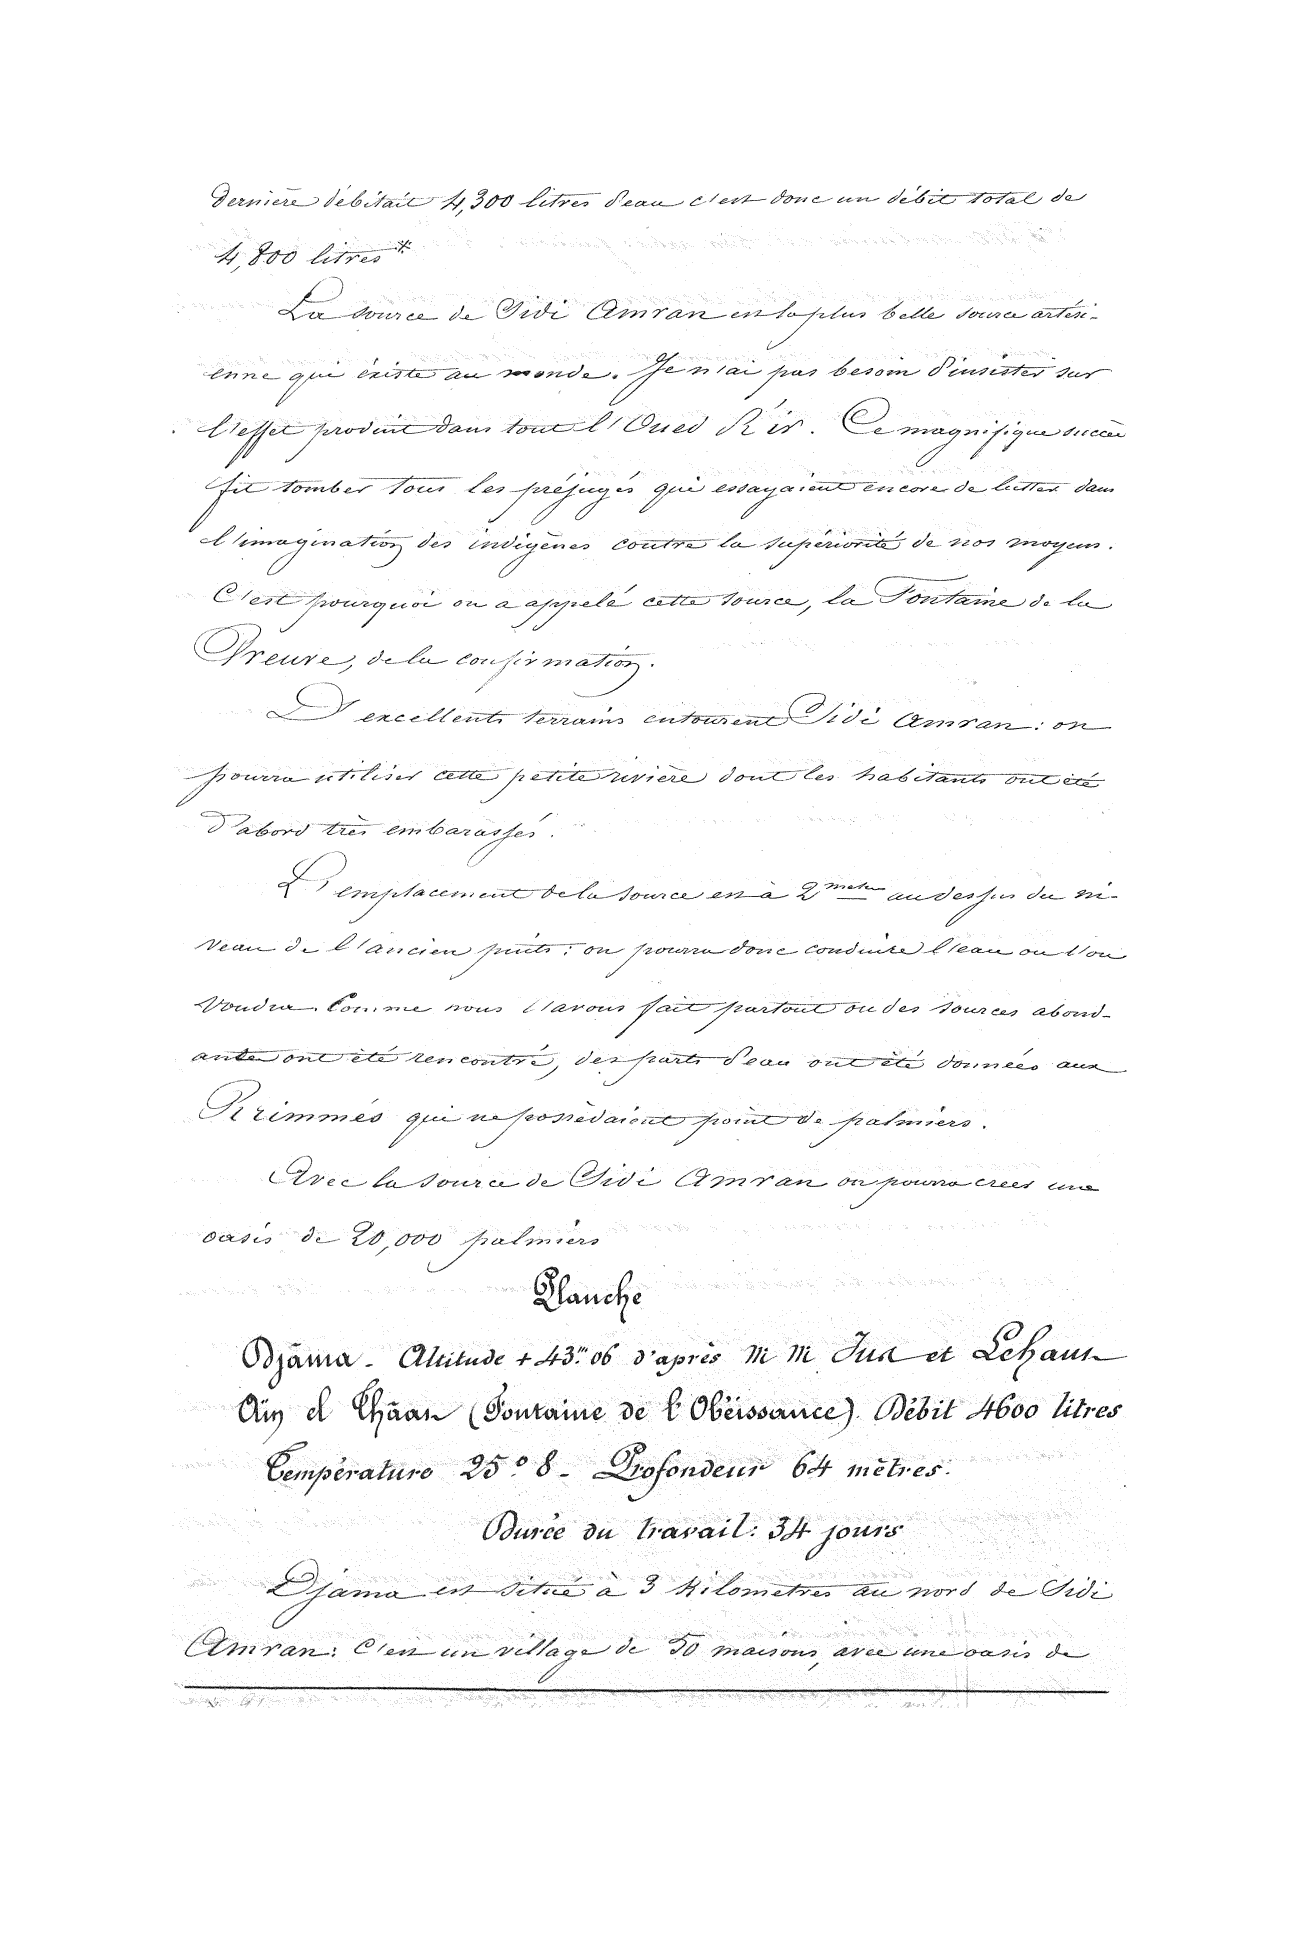 dernière débitait 4,300 litres d'eau c'est donc un débit total de
4,800 litres*
La source de Sidi Amran est la plus belle source artési-
enne qui existe au monde. Je n'ai pas besoin d'insister sur
l'effet produit dans tout l'Oued R'ir. Ce magnifique succès
fit tomber tous les préjugés qui essayaient encore de lutter dans
l'imagination des indigènes contre la supériorité de nos moyens.
C'est pourquoi on a appelé cette source, la Fontaine de la
Preuve, de la confirmation.
D'excellents terrains entourent Sidi Amran : on
pourra utiliser cette petite rivière dont les habitants ont été
d'abord très embarassés.
L'emplacement de la source est à 2 mètres au dessus du ni-
veau de l'ancien puits : on pourra donc conduire l'eau ou l'on
voudra. Comme nous l'avons fait partout ou des sources abond-
antes ont été rencontré, des parts d'eau ont été données aux
Krimmés qui ne possèdaient point de palmiers.
Avec la source de Sidi Amran on pourra créer une
oasis de 20,000 palmiers
Planche
Djâma - Altitude + 43.m 06 d'après M M. Jus et Lehaut
Aïn el Chäan (Fontaine de l'Obéissance). Débit 4600 litres
Température 25.° 8 - Profondeur 64 mètres.
Durée du travail : 34 jours
Djama est situé à 3 Kilomètres au nord de Sidi
Amran : C'est un village de 50 maisons, avec une oasis de